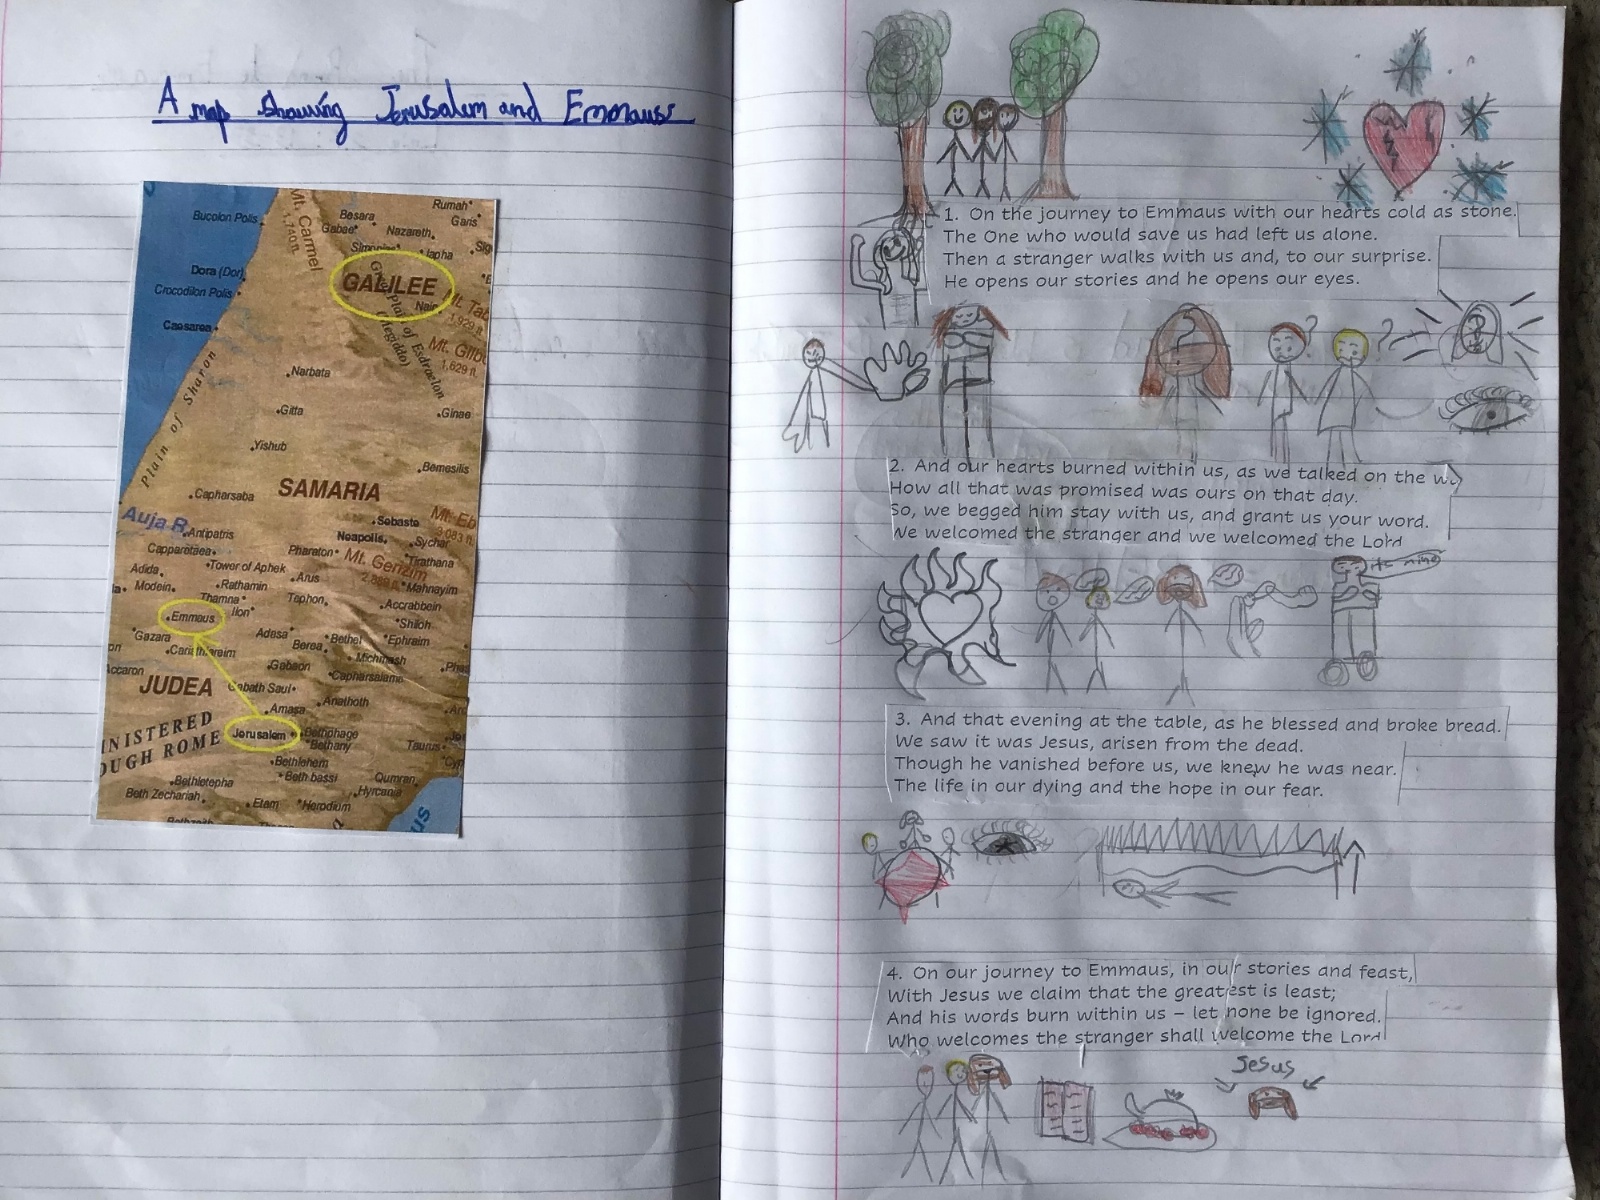 A map showing Jerusalem and Emmaus
Rumah
Bucolon Polis
Besara
Garis
Gabae
Nazareth
Mt. Carmel
1,740 ft.
Simonias
Iapha
Dora (Dor)
GALILEE
Crocodilon Polis
Nain
Great Plain of Esdraelon
(Megiddo)
Mt. Tab
1,929 ft.
Caesarea
Mt. Gilb
1,629 ft.
Plain of Sharon
Narbata
Gitta
Ginae
Yishub
Bemesilis
Capharsaba
SAMARIA
Mt. Eb
3,083 ft.
Auja R.
Antipatris
Sebaste
Neapolis
Sychar
Capparetaea
Pharaton
Mt. Gerizim
2,889 ft.
Tirathana
Adida
Tower of Aphek
Modein
Rathamin
Arus
Mahnayim
Thamna
Tephon
Accrabbein
Emmaus
Ilon
Shiloh
Gazara
Adasa
Bethel
Ephraim
Cariathiareim
Berea
Michmash
Accaron
Gabaon
Capharsalama
JUDEA
Gabath Saul
Amasa
Anathoth
INISTERED
OUGH ROME
Jerusalem
Bethphage
Bethany
Taurus
Bethlehem
Bethletepha
Beth bassi
Qumran
Beth Zechariah
Hyrcania
Etam
Herodium
1. On the journey to Emmaus with our hearts cold as stone.
The One who would save us had left us alone.
Then a stranger walks with us and, to our surprise.
He opens our stories and he opens our eyes.
?
? ?
?
2. And our hearts burned within us, as we talked on the way
How all that was promised was ours on that day.
So, we begged him stay with us, and grant us your word.
We welcomed the stranger and we welcomed the Lord
its mine
3. And that evening at the table, as he blessed and broke bread.
We saw it was Jesus, arisen from the dead.
Though he vanished before us, we knew he was near.
The life in our dying and the hope in our fear.
4. On our journey to Emmaus, in our stories and feast,
With Jesus we claim that the greatest is least;
And his words burn within us – let none be ignored.
Who welcomes the stranger shall welcome the Lord
Jesus